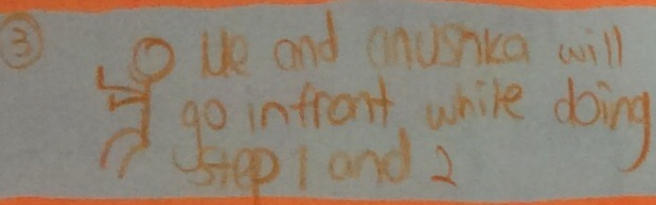 ③ Me and anushka will
go infront while doing
step 1 and 2